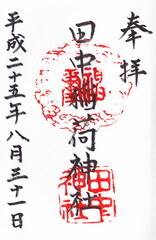 奉拝
田中稲荷神社
平成二十五年八月三十一日